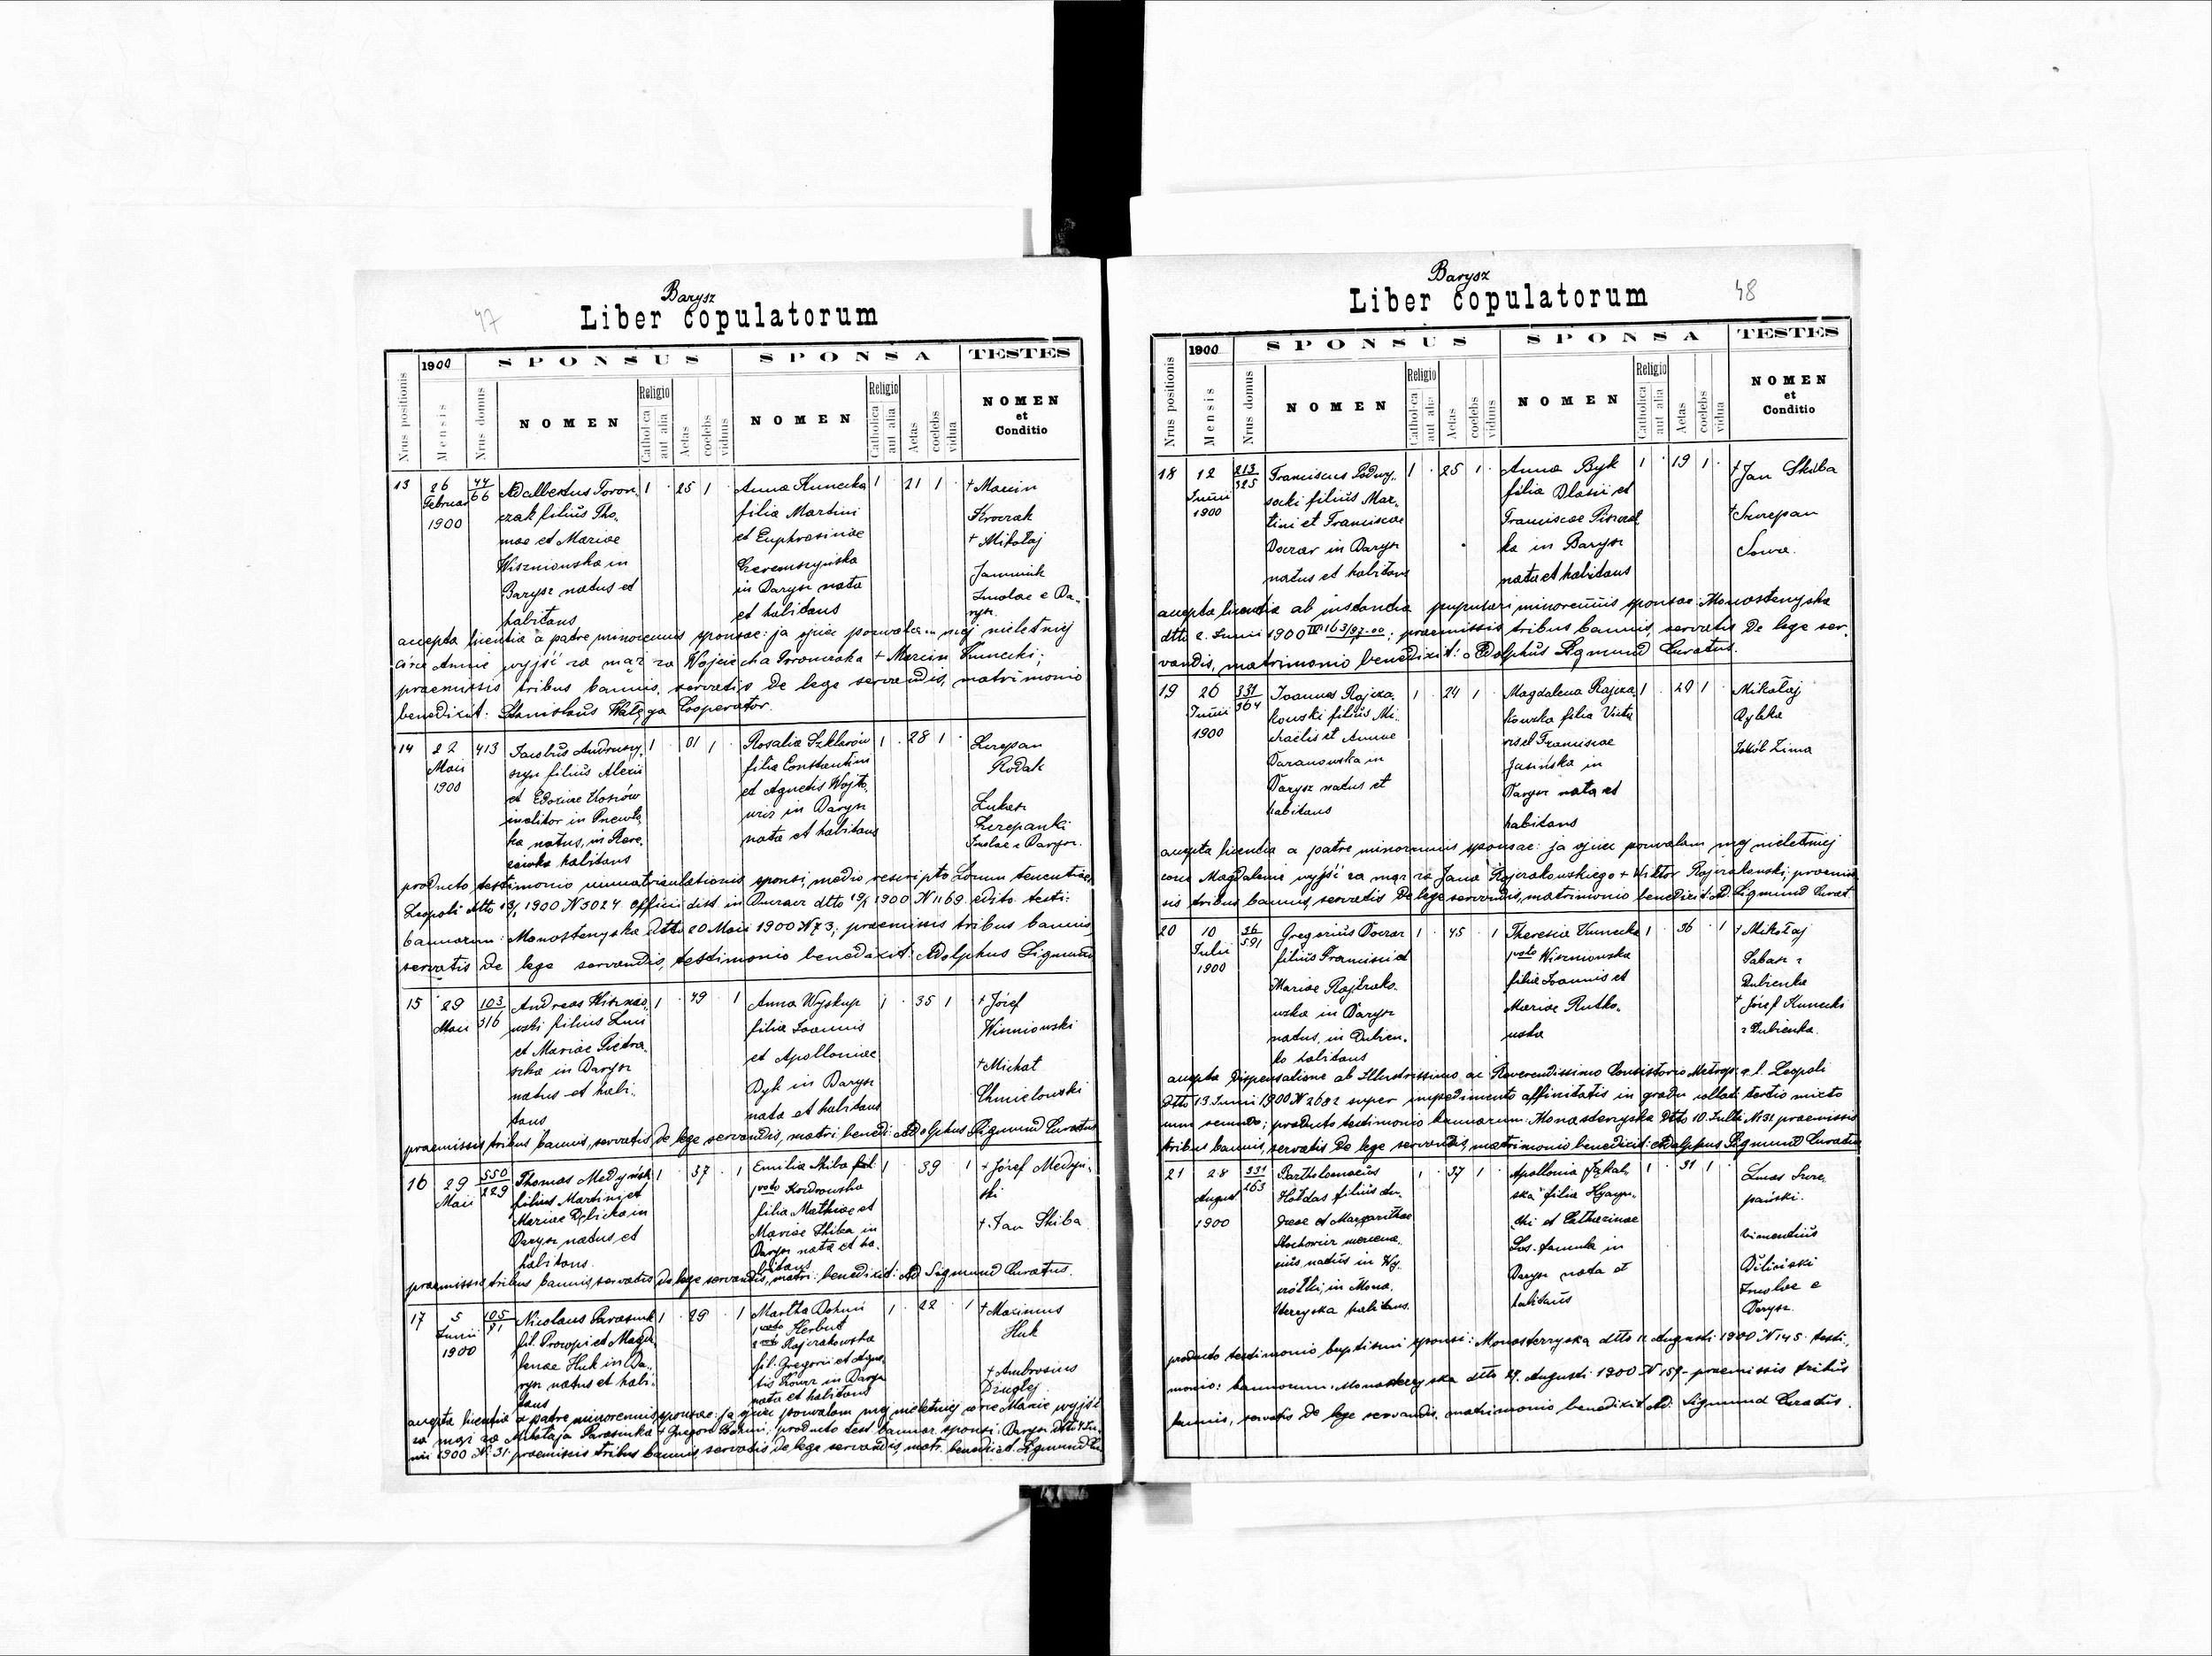 Barysz
47
Liber copulatorum
Nrus positionis
1900
Mensis
Nrus domus
SPONSUS
NOMEN
Religio
Catholica
aut alia
Aetas
coelebs
viduus
SPONSA
NOMEN
Religio
Catholica
aut alia
Aetas
coelebs
vidua
TESTES
NOMEN
et
Conditio
13
26
Februar
1900
44
66
Adalbertus Toron
czak filius Tho-
mae et Mariae
Wiszniowska in
Barysz natus et
habitans
1 · 25 1
Anna Kunecka
filia Martini
et Euphrosinae
in Barysz nata
et habitans
1 · 21 1 ·
+ Marcin
Krorzak
+ Mikołaj
Jannich
accepta licentia a patre minorennis sponsae: ja ojciec pozwalam mej nieletniej
córce Annie wyjść za mąż za Wojciecha Toronczaka + Marcin Kunecki;
praemissis tribus bannis, servatis de lege servandis, matrimonio
benedixit: Stanislaus Walęga Cooperator.
14
22
Maii
1900
413
Jacobus Andruszy
szyn filius Alexii
natus, in
habitans
1
Rosalia Szklarów
filia Constantini
et Agnetis Wojto
wicz in Barysz
nata et habitans
1 · 28 1 ·
Szczepan
Rodak
Łukasz
Szczepanki
producto testimonio sponsi, medio rescripto
Leopoli dtto 1900 N 3024 officii dist in dtto 19/ 1900 N 1169 edito testi:
bannorum: Monasterzyska dtto 20 Maii 1900 N 73; praemissis tribus bannis,
servatis de lege servandis, testimonio benedixit: Adolphus Sigmund
15
29
Maii
103
316
Andreas Wisznio
wski filius
et Mariae Pietra
szka in Barysz
natus et habi-
tans
1 · 49 · 1
Anna Wyskup
filia Joannis
et Apolloniae
Byk in Barysz
nata et habitans
1 · 35 1
+ Józef
Wiszniowski
+ Michał
Chmielowski
praemissis tribus bannis, servatis de lege servandis, matri benedi: Adolphus Sigmund Curatus
16
29
Maii
550
229
Thomas Medyński
filius Martini et
Mariae in
Barysz natus et
habitans.
1 · 37 · 1
Emilia Skiba
1 voto
filia Mathiae et
Mariae Skiba in
Barysz nata et ha-
bitans
1 · 39 · 1
+ Józef Medyń-
ski
+ Jan Skiba
praemissis tribus bannis, servatis de lege servandis, matri: benedixit: Ad Sigmund Curatus.
17
5
Junii
1900
105
71
Nicolaus Parasiuk
fil. Procopi et Magda
lenae Huk in Ba-
rysz natus et habi-
tans
1 · 29 · 1
Martha Bohuni
1 voto Herbut
2 voto Rajzakowska
fil: Gregorii et Agne-
tis in Barysz
nata et habitans
1 · 22 · 1
+ Maximus
Huk
+ Ambrosius
accepta licentia a patre minorennis sponsae: ja ojciec pozwalam mej nieletniej córce Marcie wyjść
za mąż za Mikołaja Parasiuka + Gregor; producto test. bannor. sponsi: Barysz dtto 4 Ju-
nii 1900 N. 31 praemissis tribus bannis, servatis de lege servandis, matr. benedixit. Sigmund Cu
Barysz
48
Liber copulatorum
Nrus positionis
1900
Mensis
Nrus domus
SPONSUS
NOMEN
Religio
Catholica
aut alia
Aetas
coelebs
viduus
SPONSA
NOMEN
Religio
Catholica
aut alia
Aetas
coelebs
vidua
TESTES
NOMEN
et
Conditio
18
12
Junii
1900
213
325
Franciscus Podwy-
socki filius Mar-
tini et Franciscae
Doczar in Barysz
natus et habitans
1 · 25 1 ·
Anna Byk
filia Blasii et
Franciscae
ka in Barysz
nata et habitans
1 · 19 1 ·
+ Jan Skiba
+ Szczepan
Sowa.
accepta licentia ab instantia pupillari minorennis sponsae: Monasterzyska
dtto 2. Junii 1900 163/97-00; praemissis tribus bannis, servatis de lege ser-
vandis, matrimonio benedixit: Adolphus Sigmund Curatus.
19
26
Junii
1900
331
364
Joannes Rajcza-
kowski filius Mi-
chaelis et Annae
Baranowska in
Barysz natus et
habitans
1 · 24 1
Magdalena Rajcza
kowska filia Victo
ris et Franciscae
Jasińska in
Barysz nata et
habitans
1 · 20 1
Mikołaj
Rybka
Jakób Zima
accepta licentia a patre minorennis sponsae: ja ojciec pozwalam mej nieletniej
córce Magdalenie wyjść za mąż za Jana Rajczakowskiego + Wiktor Rajczakowski; praemis
sis tribus bannis, servatis de lege servandis, matrimonio benedixit: Ad. Sigmund Curat.
20
10
Julii
1900
36
591
Gregorius Doczar
filius Francisci et
Mariae Rajczako-
wska in Barysz
natus, in Dubien-
ko habitans
1 · 45 · 1
Theresia Kunecka
1 voto Wiszniowska
filia Joannis et
Mariae Rutko-
wska
1 · 36 · 1
+ Mikołaj
Sabasz z
Dubienka
+ Józef Kunecki
z Dubienka.
accepta dispensatione ab Illustrissimo ac Reverendissimo Consistorio Metrop: r. l. Leopoli
dtto 13 Junii 1900 N 2682 super impedimento affinitatis in gradu collat: tertio mixto
cum secundo; producto testimonio bannorum: Monasterzyska dtto 10. Julii N 31 praemissis
tribus bannis, servatis de lege servandis, matrimonio benedixit: Adolphus Sigmund Curatus
21
28
August
1900
331
263
Bartholomaeus
Hołdas filius An-
dreae et Margarithae
natus in Wy-
in Mona-
sterzyska habitans.
1 · 37 1 ·
Apollonia Jakub
ska filia Hyacin-
thi et Catharinae
Łos. famula in
Barysz nata et
habitans
1 · 31 1
Lucas Szcze-
pański.
Vincentius
Biliński
Barysz.
producto testimonio baptismi sponsi: Monasterzyska dtto 11 Augusti 1900 N 145 testi-
monio: bannorum: Monasterzyska dtto 27. Augusti 1900 N 159 - praemissis tribus
bannis, servatis de lege servandis, matrimonio benedixit Ad. Sigmund Curatus.